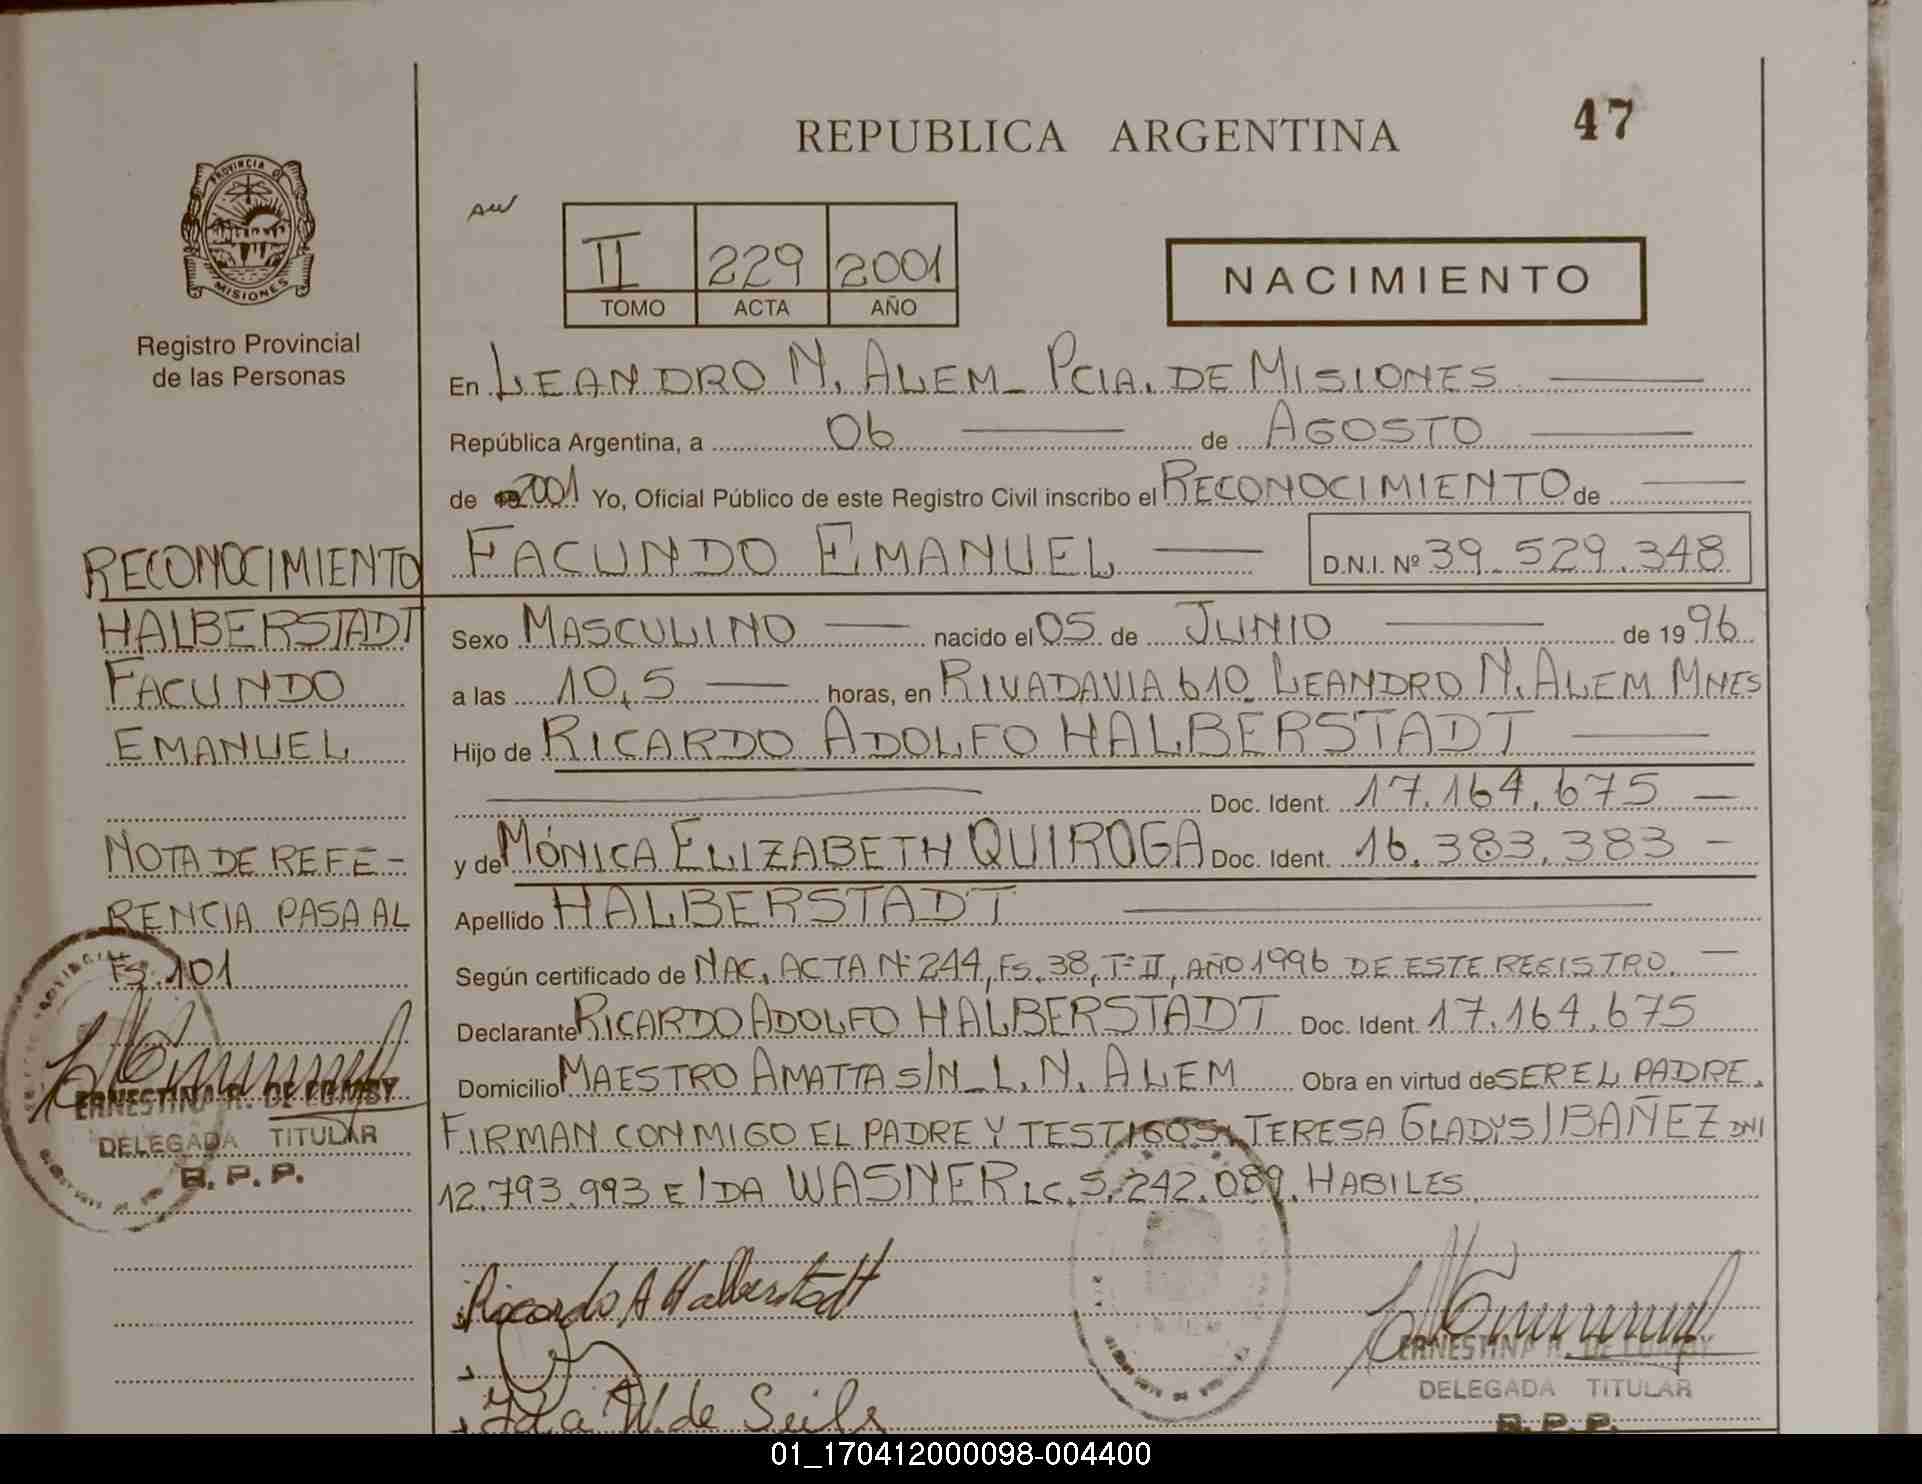 REPUBLICA ARGENTINA
47
PROVINCIA DE
MISIONES
Registro Provincial
de las Personas
II 229 2001
TOMO ACTA AÑO
NACIMIENTO
En LEANDRO N. ALEM_ PCIA. DE MISIONES
República Argentina, a 06 de AGOSTO
de 2001 Yo, Oficial Público de este Registro Civil inscribo el RECONOCIMIENTO de
FACUNDO EMANUEL D.N.I. Nº 39.529.348
RECONOCIMIENTO
HALBERSTADT
FACUNDO
EMANUEL
NOTA DE REFE-
RENCIA PASA AL
FS. 101
ERNESTINA R. DE
DELEGADA TITULAR
R. P. P.
Sexo MASCULINO nacido el 05 de JUNIO de 1996
a las 10,5 horas, en RIVADAVIA 610 LEANDRO N. ALEM MNES
Hijo de RICARDO ADOLFO HALBERSTADT
Doc. Ident. 17.164.675 —
y de MÓNICA ELIZABETH QUIROGA Doc. Ident. 16.383.383 -
Apellido HALBERSTADT
Según certificado de NAC, ACTA Nº 244, FS. 38, Tº II, AÑO 1996 DE ESTE REGISTRO. —
Declarante RICARDO ADOLFO HALBERSTADT Doc. Ident. 17.164.675
Domicilio MAESTRO AMATTA S/N_L.N. ALEM Obra en virtud de SER EL PADRE.
FIRMAN CONMIGO EL PADRE Y TESTIGOS, TERESA GLADYS IBAÑEZ DNI
12.793.993 E IDA WASNER LC. 5.242.089. HABILES
Ricardo A Halberstadt
Ida W. de Seils
ERNESTINA R. DE
DELEGADA TITULAR
R. P. P.
01_170412000098-004400